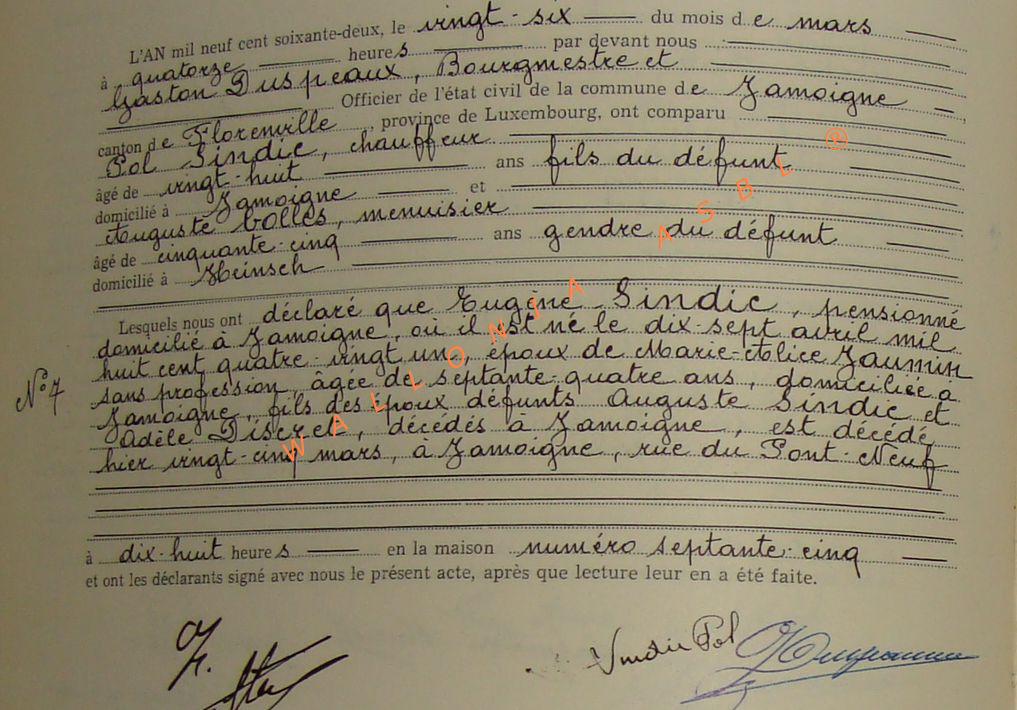 L'AN mil neuf cent soixante-deux, le vingt-six du mois de mars
à quatorze heures par devant nous
Gaston Duspeaux, Bourgmestre et
Officier de l'état civil de la commune de Jamoigne
canton de Florenville, province de Luxembourg, ont comparu
Pol Sindic, chauffeur
âgé de vingt-huit ans fils du défunt
domicilié à Jamoigne et
Auguste Bolles, menuisier
âgé de cinquante-cinq ans gendre du défunt
domicilié à Heinsch
Lesquels nous ont déclaré que Eugène Sindic, pensionné
domicilié à Jamoigne, où il est né le dix-sept avril mil
huit cent quatre-vingt un, époux de Marie-Alice Jaumin
N° 7
sans profession, âgée de septante-quatre ans, domiciliée à
Jamoigne, fils des époux défunts Auguste Sindic et
Adèle Discret, décédés à Jamoigne, est décédé
hier vingt-cinq mars, à Jamoigne, rue du Pont-Neuf
à dix-huit heures en la maison numéro septante-cinq
et ont les déclarants signé avec nous le présent acte, après que lecture leur en a été faite.
Pol
WALLONIA ASBL ®